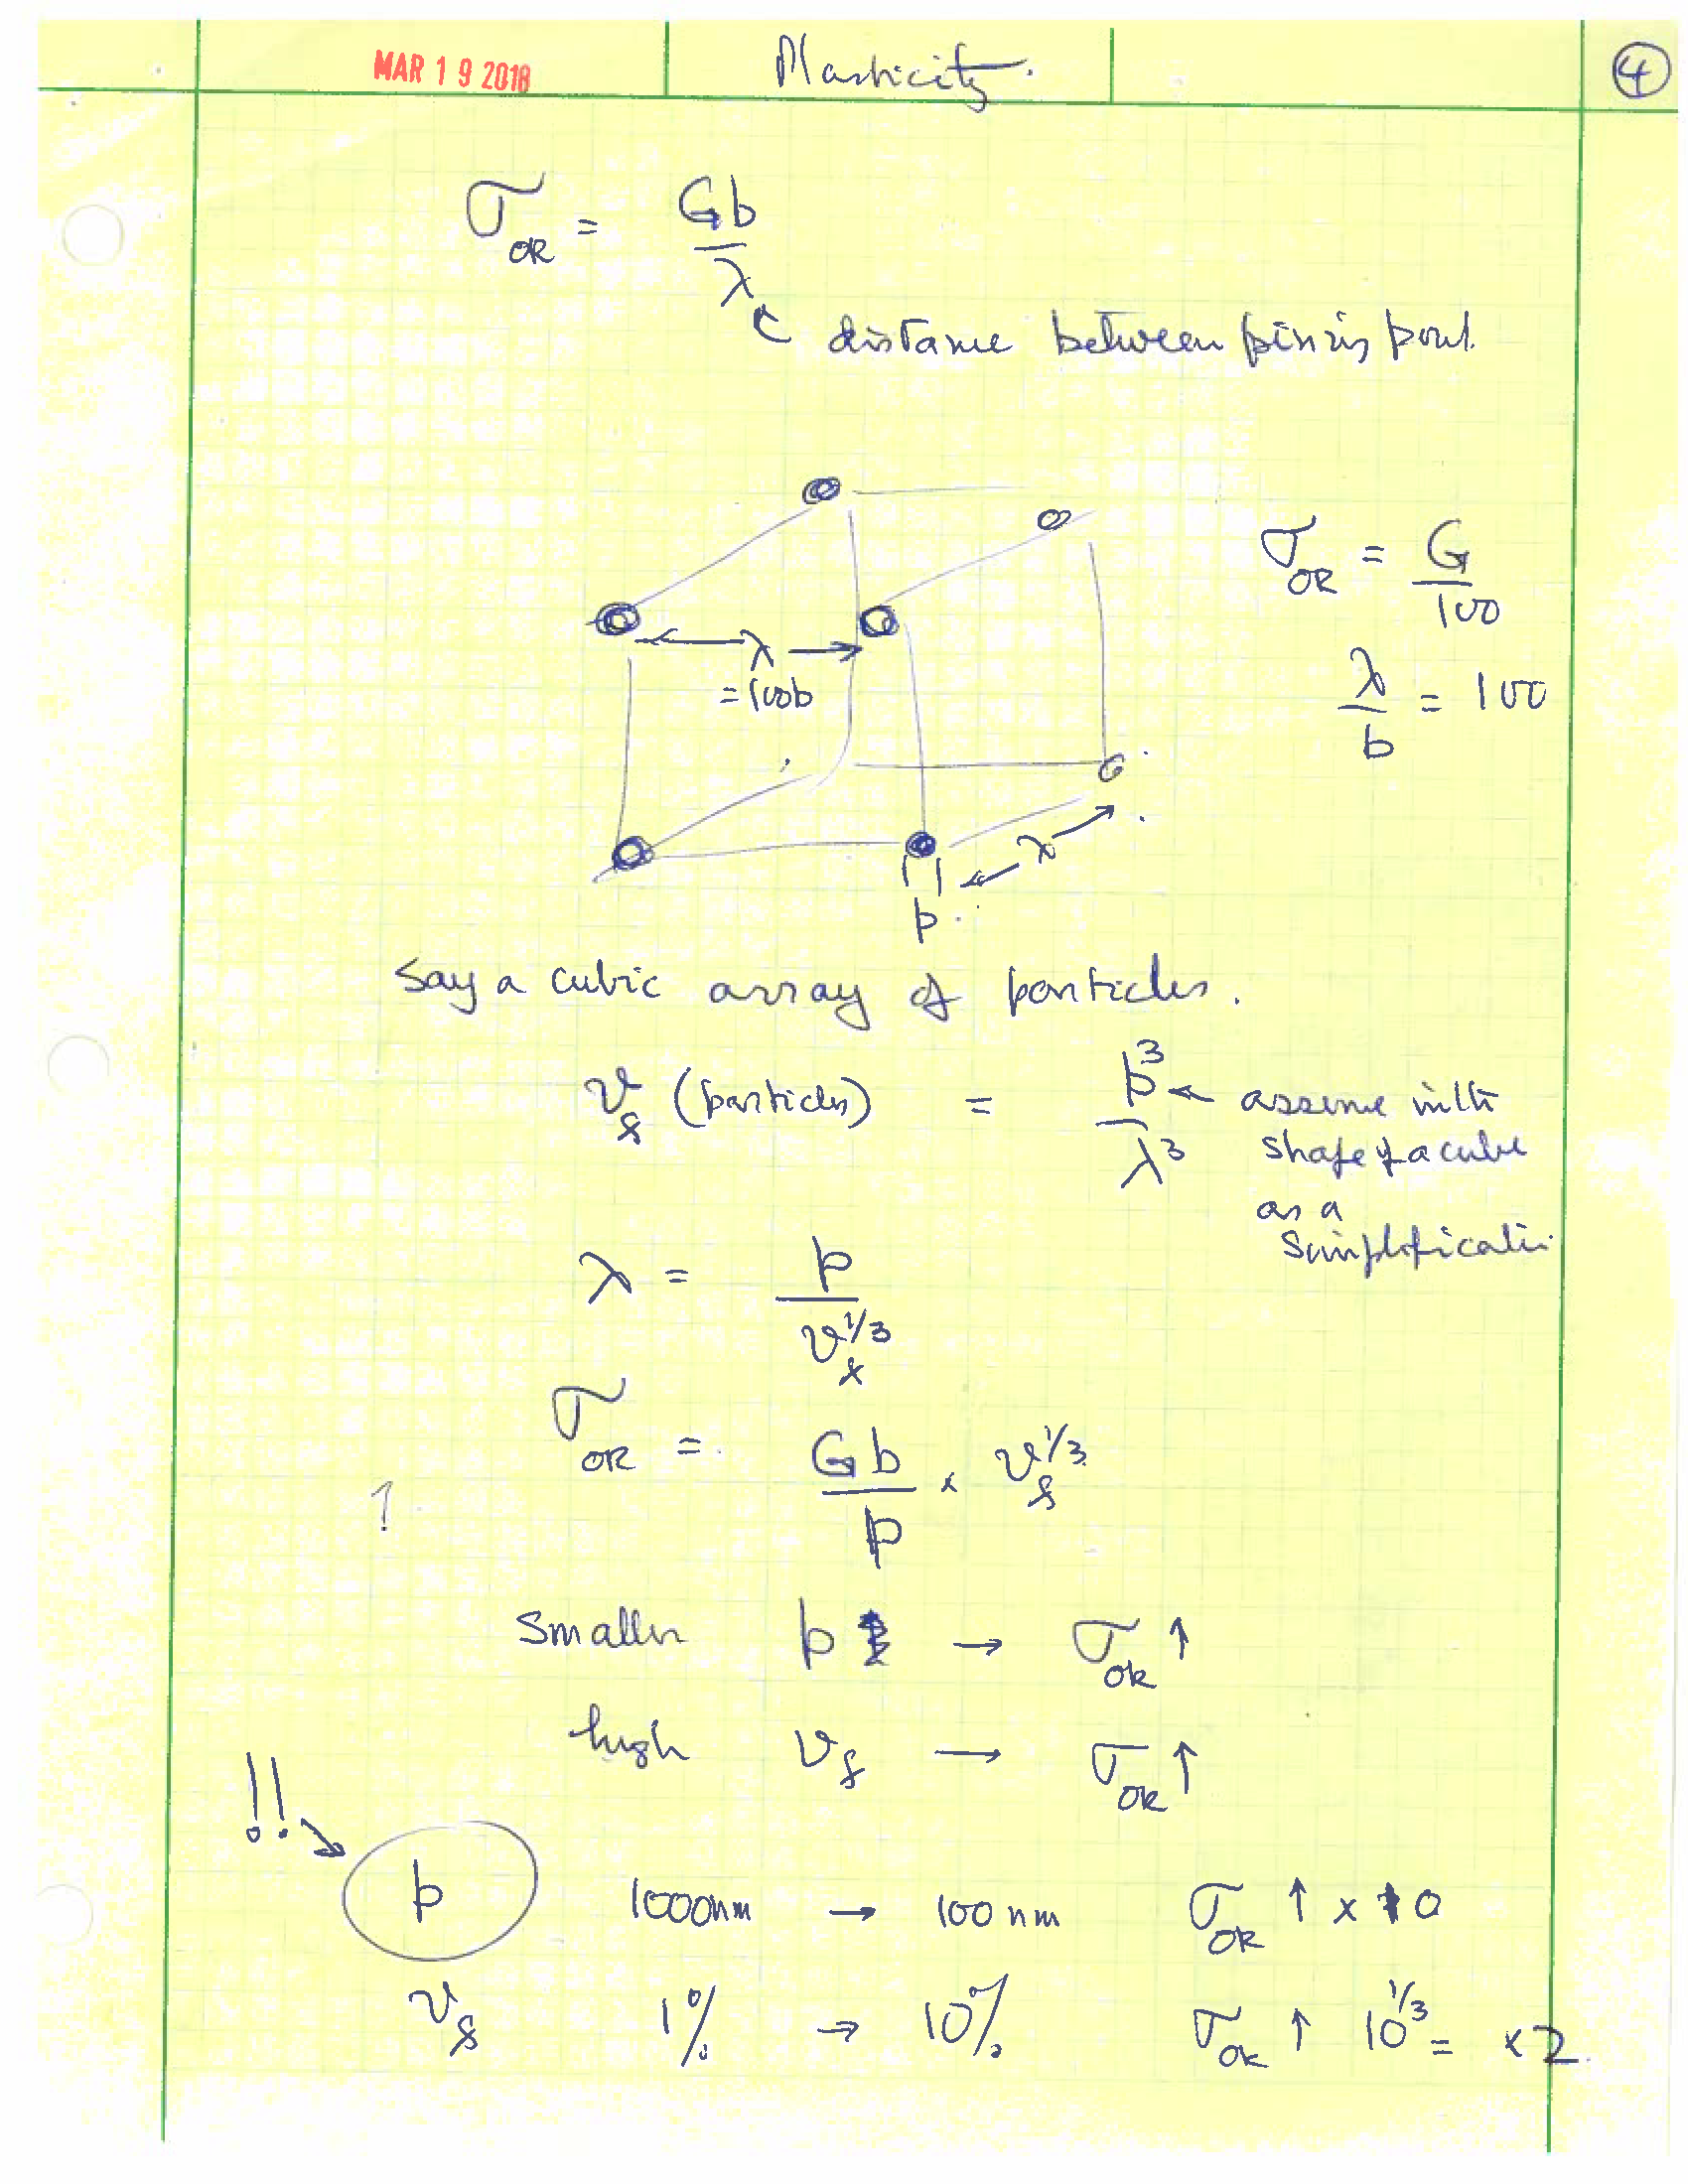 MAR 19 2018 Plasticity. 4
σ_OR = Gb/λ
distance between pinning point.
σ_OR = G/100
λ = 100b
λ/b = 100
λ
p.
Say a cubic array of particles.
v_f (particles) = p³/λ³ ← assume with
shape of a cube
as a
simplification
λ = p/v_f^1/3
σ_OR = Gb/p × v_f^1/3
Smaller p → σ_OR ↑
high v_f → σ_OR ↑
!!
p 1000nm → 100 nm σ_OR ↑ × 10
v_f 1% → 10% σ_OR ↑ 10^1/3 = ×2